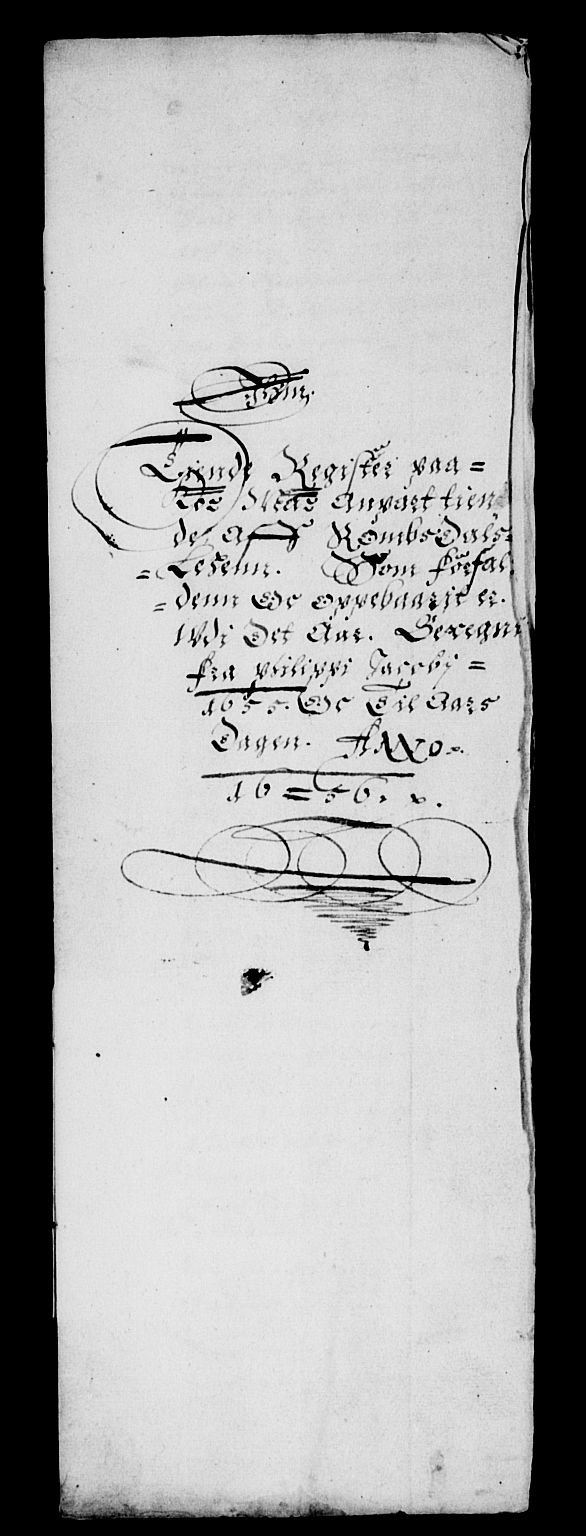 Tiende Register paa=
Kes Ma͡es Anpart tien
de Aff Rombsdals=
=Lehenn. Som forfal
=denn Oc oppebaarit er.
Wdj Det Aar. Beregnit
fra philippi Jacobj =
1655. Oc Til Aars
Dagen. Anno.
16=56.